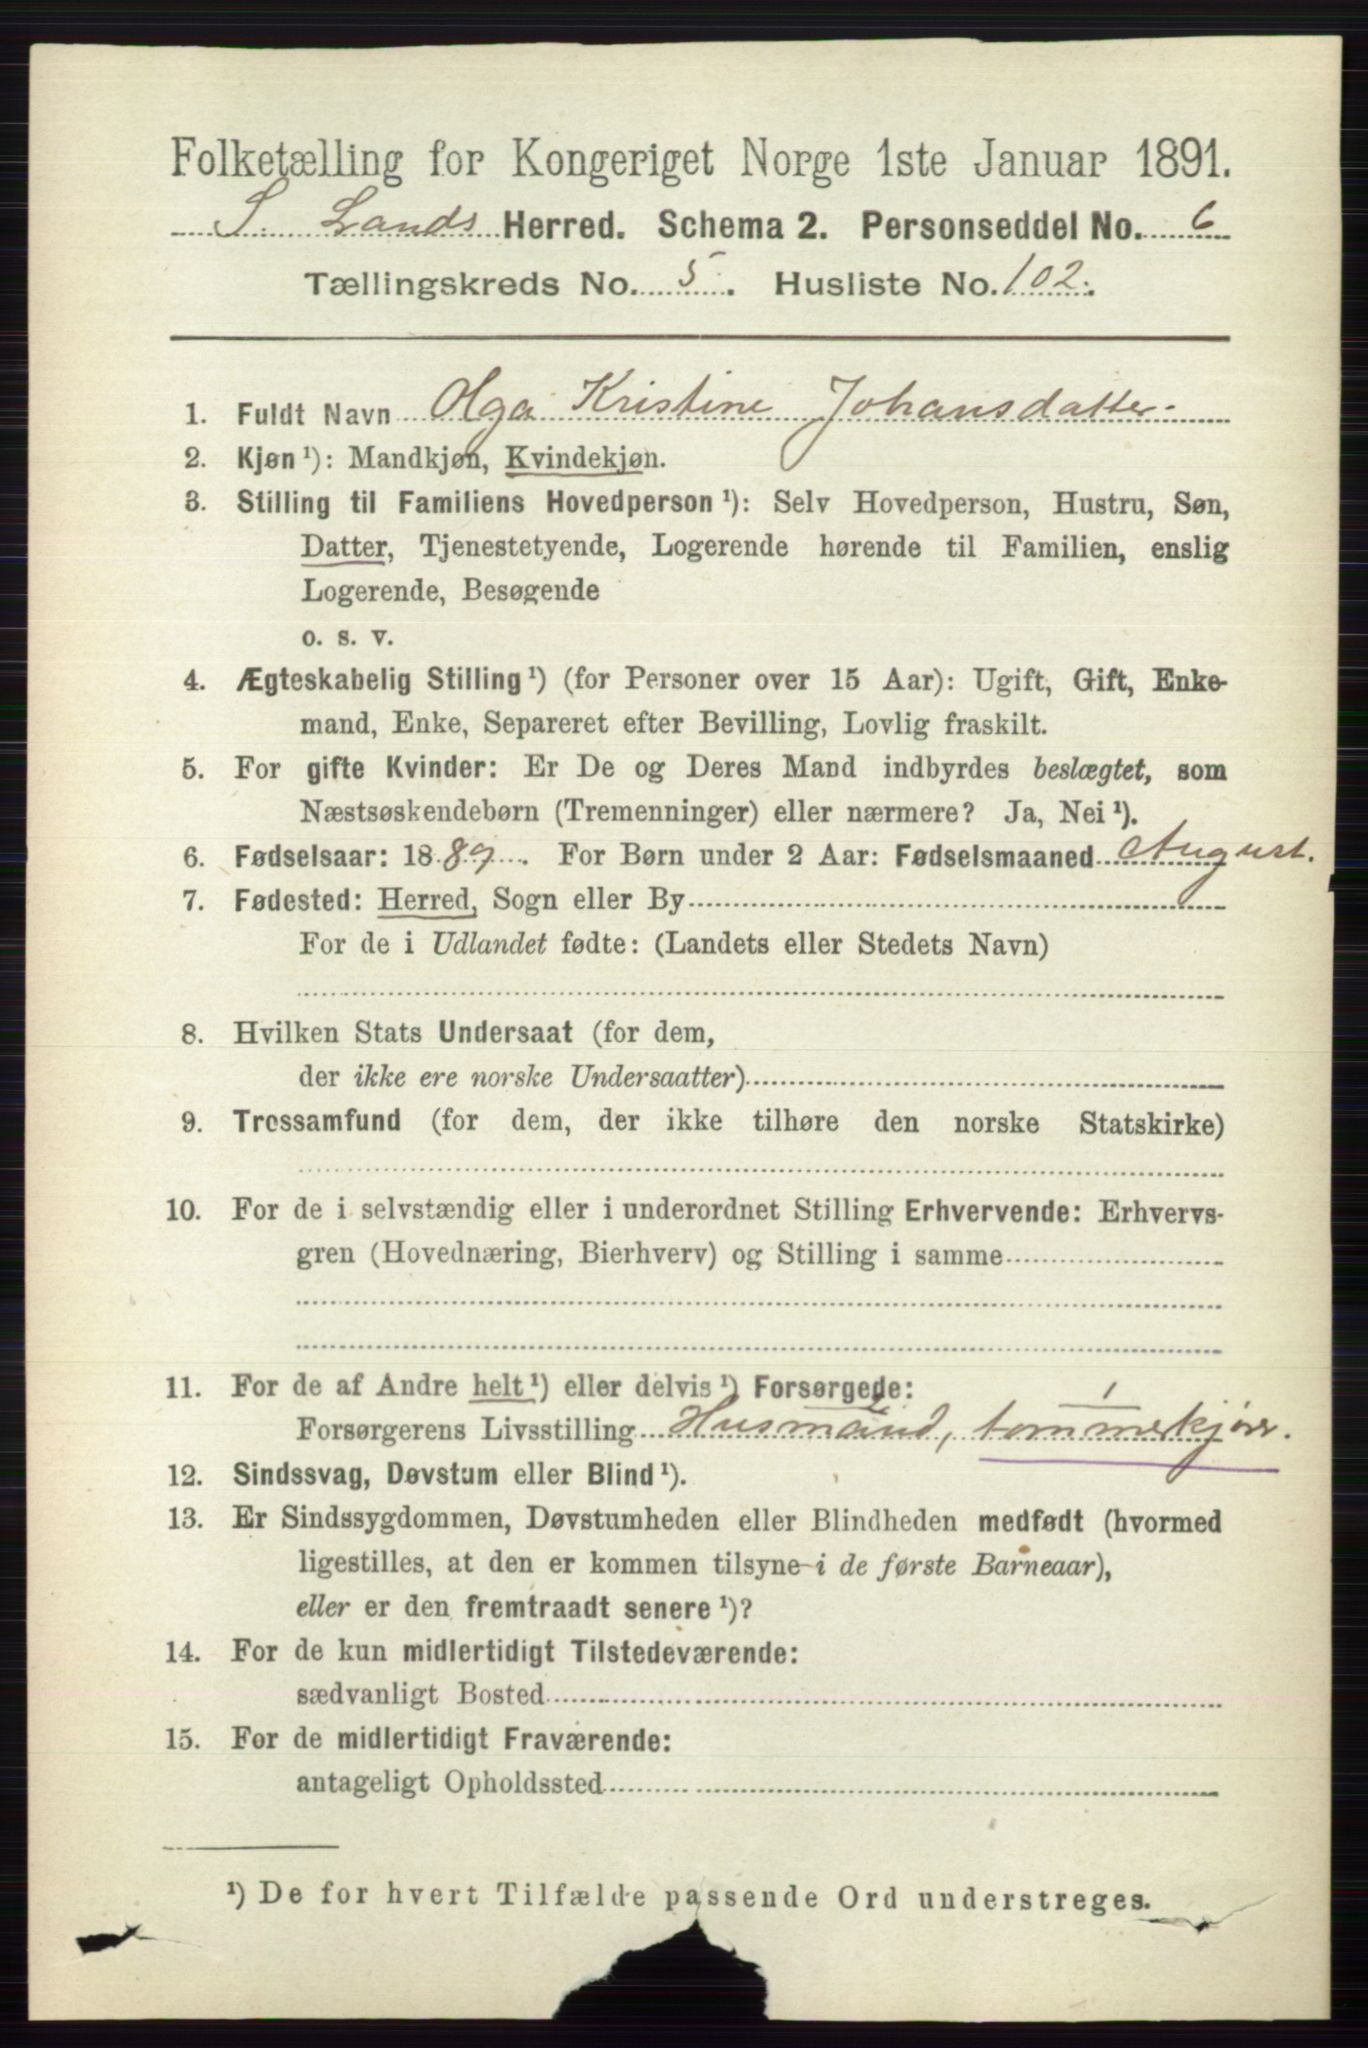 Folketælling for Kongeriget Norge 1ste Januar 1891.
S. Lands Herred. Schema 2. Personseddel No. 6
Tællingskreds No. 5. Husliste No. 102.
1. Fuldt Navn Olga Kristine Johansdatter
2. Kjøn ¹): Mandkjøn, Kvindekjøn.
3. Stilling til Familiens Hovedperson ¹): Selv Hovedperson, Hustru, Søn,
Datter, Tjenestetyende, Logerende hørende til Familien, enslig
Logerende, Besøgende
o. s. v.
4. Ægteskabelig Stilling ¹) (for Personer over 15 Aar): Ugift, Gift, Enke-
mand, Enke, Separeret efter Bevilling, Lovlig fraskilt.
5. For gifte Kvinder: Er De og Deres Mand indbyrdes beslægtet, som
Næstsøskendebørn (Tremenninger) eller nærmere? Ja, Nei ¹).
6. Fødselsaar: 1889. For Børn under 2 Aar: Fødselsmaaned August.
7. Fødested: Herred, Sogn eller By
For de i Udlandet fødte: (Landets eller Stedets Navn)
8. Hvilken Stats Undersaat (for dem,
der ikke ere norske Undersaatter)
9. Trossamfund (for dem, der ikke tilhøre den norske Statskirke)
10. For de i selvstændig eller i underordnet Stilling Erhvervende: Erhvervs-
gren (Hovednæring, Bierhverv) og Stilling i samme
11. For de af Andre helt ¹) eller delvis ¹) Forsørgede:
Forsørgerens Livsstilling Husmand, tømmerkjører.
12. Sindssvag, Døvstum eller Blind ¹).
13. Er Sindssygdommen, Døvstumheden eller Blindheden medfødt (hvormed
ligestilles, at den er kommen tilsyne i de første Barneaar),
eller er den fremtraadt senere ¹)?
14. For de kun midlertidigt Tilstedeværende:
sædvanligt Bosted
15. For de midlertidigt Fraværende:
antageligt Opholdssted
¹) De for hvert Tilfælde passende Ord understreges.